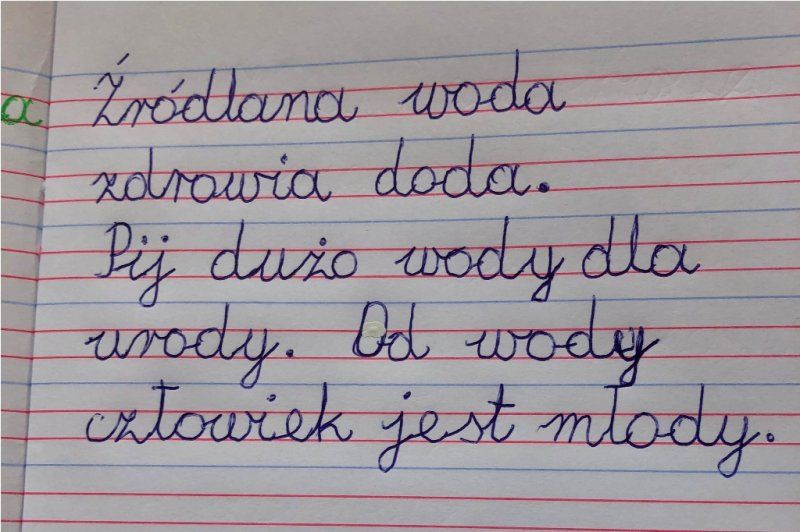 a
Źródlana woda
zdrowia doda.
Pij dużo wody dla
urody. Od wody
człowiek jest młody.